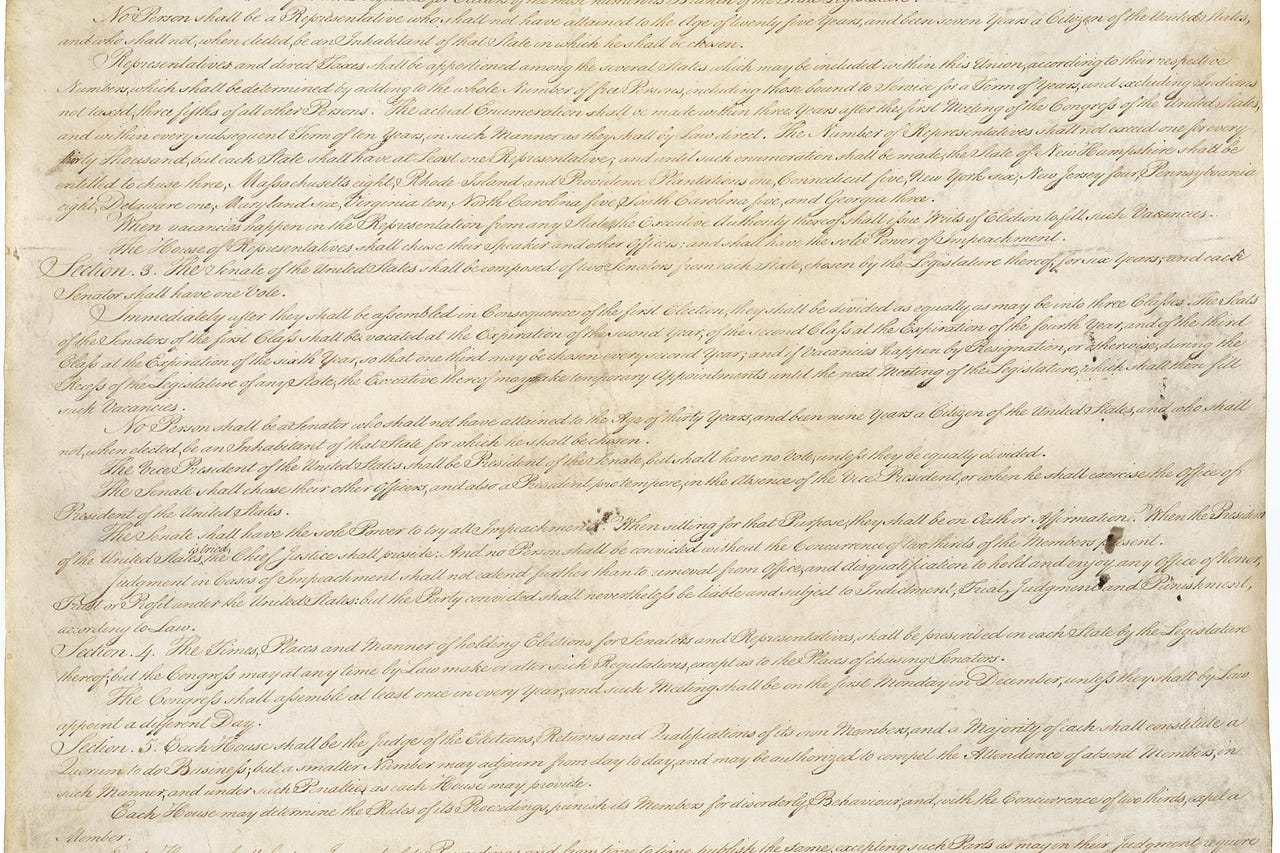 of the most numerous Branch of the State Legislature.
No Person shall be a Representative who shall not have attained to the Age of twenty five Years, and been seven Years a Citizen of the United States,
and who shall not, when elected, be an Inhabitant of that State in which he shall be chosen.
Representatives and direct Taxes shall be apportioned among the several States which may be included within this Union, according to their respective
Numbers, which shall be determined by adding to the whole Number of free Persons, including those bound to Service for a Term of Years, and excluding Indians
not taxed, three fifths of all other Persons. The actual Enumeration shall be made within three Years after the first Meeting of the Congress of the United States,
and within every subsequent Term of ten Years, in such Manner as they shall by Law direct. The Number of Representatives shall not exceed one for every
thirty Thousand, but each State shall have at Least one Representative; and until such enumeration shall be made, the State of New Hampshire shall be
entitled to chuse three, Massachusetts eight, Rhode-Island and Providence Plantations one, Connecticut five, New-York six, New Jersey four, Pennsylvania
eight, Delaware one, Maryland six, Virginia ten, North Carolina five, South Carolina five, and Georgia three.
When vacancies happen in the Representation from any State, the Executive Authority thereof shall issue Writs of Election to fill such Vacancies.
The House of Representatives shall chuse their Speaker and other Officers; and shall have the sole Power of Impeachment.
Section. 3. The Senate of the United States shall be composed of two Senators from each State, chosen by the Legislature thereof, for six Years; and each
Senator shall have one Vote.
Immediately after they shall be assembled in Consequence of the first Election, they shall be divided as equally as may be into three Classes. The Seats
of the Senators of the first Class shall be vacated at the Expiration of the second Year, of the second Class at the Expiration of the fourth Year, and of the third
Class at the Expiration of the sixth Year, so that one third may be chosen every second Year; and if Vacancies happen by Resignation, or otherwise, during the
Recess of the Legislature of any State, the Executive thereof may make temporary Appointments until the next Meeting of the Legislature, which shall then fill
such Vacancies.
No Person shall be a Senator who shall not have attained to the Age of thirty Years, and been nine Years a Citizen of the United States, and who shall
not, when elected, be an Inhabitant of that State for which he shall be chosen.
The Vice President of the United States shall be President of the Senate, but shall have no Vote, unless they be equally divided.
The Senate shall chuse their other Officers, and also a President pro tempore, in the Absence of the Vice President, or when he shall exercise the Office of
President of the United States.
The Senate shall have the sole Power to try all Impeachments. When sitting for that Purpose, they shall be on Oath or Affirmation. When the President
of the United States is tried, the Chief Justice shall preside: And no Person shall be convicted without the Concurrence of two thirds of the Members present.
Judgment in Cases of Impeachment shall not extend further than to removal from Office, and disqualification to hold and enjoy any Office of honor,
Trust or Profit under the United States: but the Party convicted shall nevertheless be liable and subject to Indictment, Trial, Judgment and Punishment,
according to Law.
Section. 4. The Times, Places and Manner of holding Elections for Senators and Representatives, shall be prescribed in each State by the Legislature
thereof; but the Congress may at any time by Law make or alter such Regulations, except as to the Places of chusing Senators.
The Congress shall assemble at least once in every Year, and such Meeting shall be on the first Monday in December, unless they shall by Law
appoint a different Day.
Section. 5. Each House shall be the Judge of the Elections, Returns and Qualifications of its own Members, and a Majority of each shall constitute a
Quorum to do Business; but a smaller Number may adjourn from day to day, and may be authorized to compel the Attendance of absent Members, in
such Manner, and under such Penalties as each House may provide.
Each House may determine the Rules of its Proceedings, punish its Members for disorderly Behaviour, and, with the Concurrence of two thirds, expel a
Member.
and from time to time publish the same, excepting such Parts as may in their Judgment require